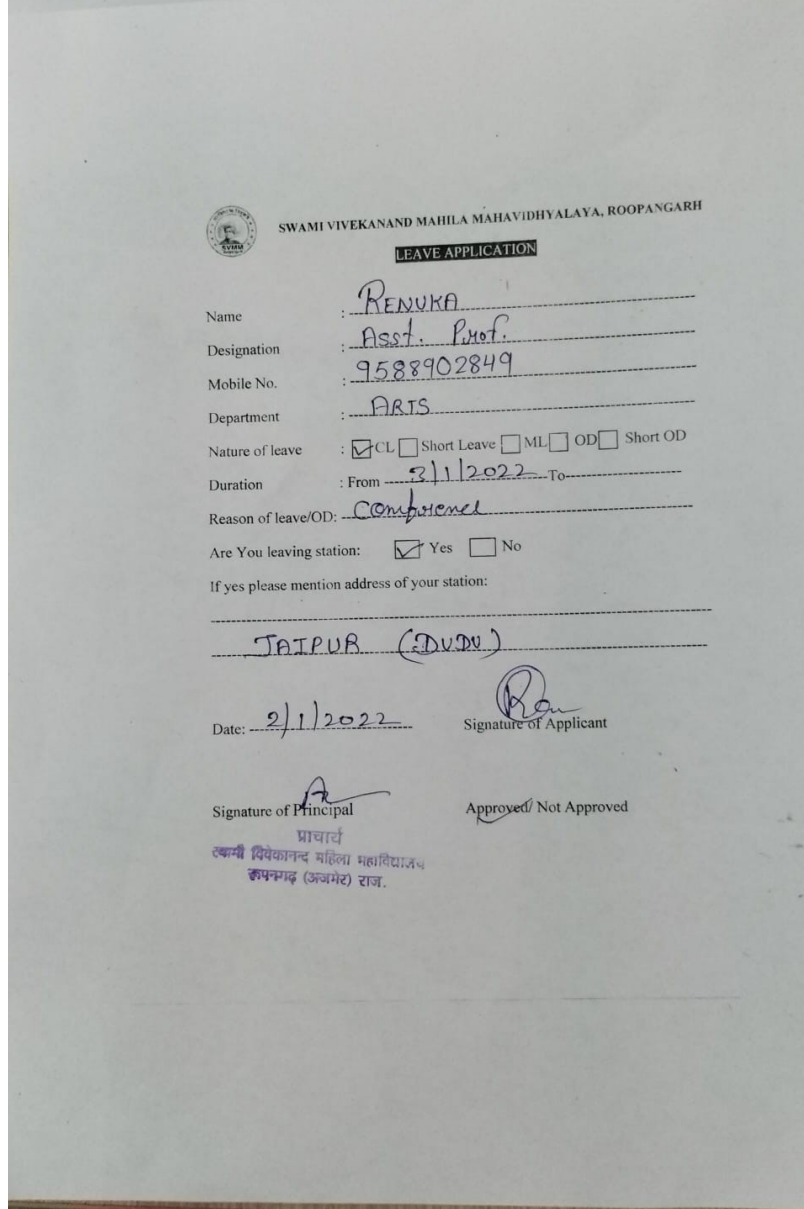 SVMM
SWAMI VIVEKANAND MAHILA MAHAVIDHYALAYA, ROOPANGARH
LEAVE APPLICATION
Name : RENUKA
Designation : Asst. Prof.
Mobile No. : 9588902849
Department : ARTS
Nature of leave : CL Short Leave ML OD Short OD
Duration : From 3/1/2022 To
Reason of leave/OD:
Are You leaving station: Yes No
If yes please mention address of your station:
JAIPUR (DUDU)
Date: 2/1/2022 Signature of Applicant
Signature of Principal Approved/ Not Approved
प्राचार्य
स्वामी विवेकानन्द महिला महाविद्यालय
रूपनगढ़ (अजमेर) राज.